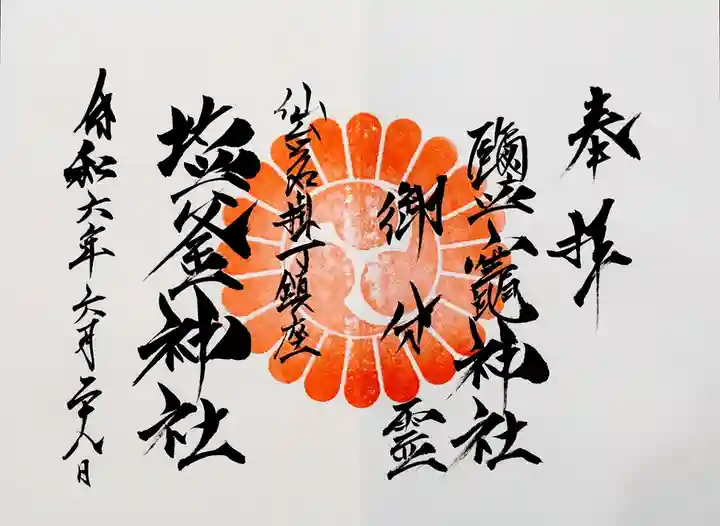 奉拝
鹽竈神社
御分霊
仙岩掛丁鎮座
塩釜神社
令和六年六月二十八日